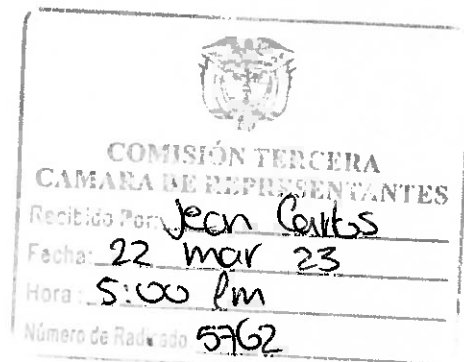 COMISIÓN TERCERA
CAMARA DE REPRESENTANTES
Recibido Por: Jean Carlos
Fecha: 22 mar 23
Hora: 5:00 pm
Número de Radicado 5762